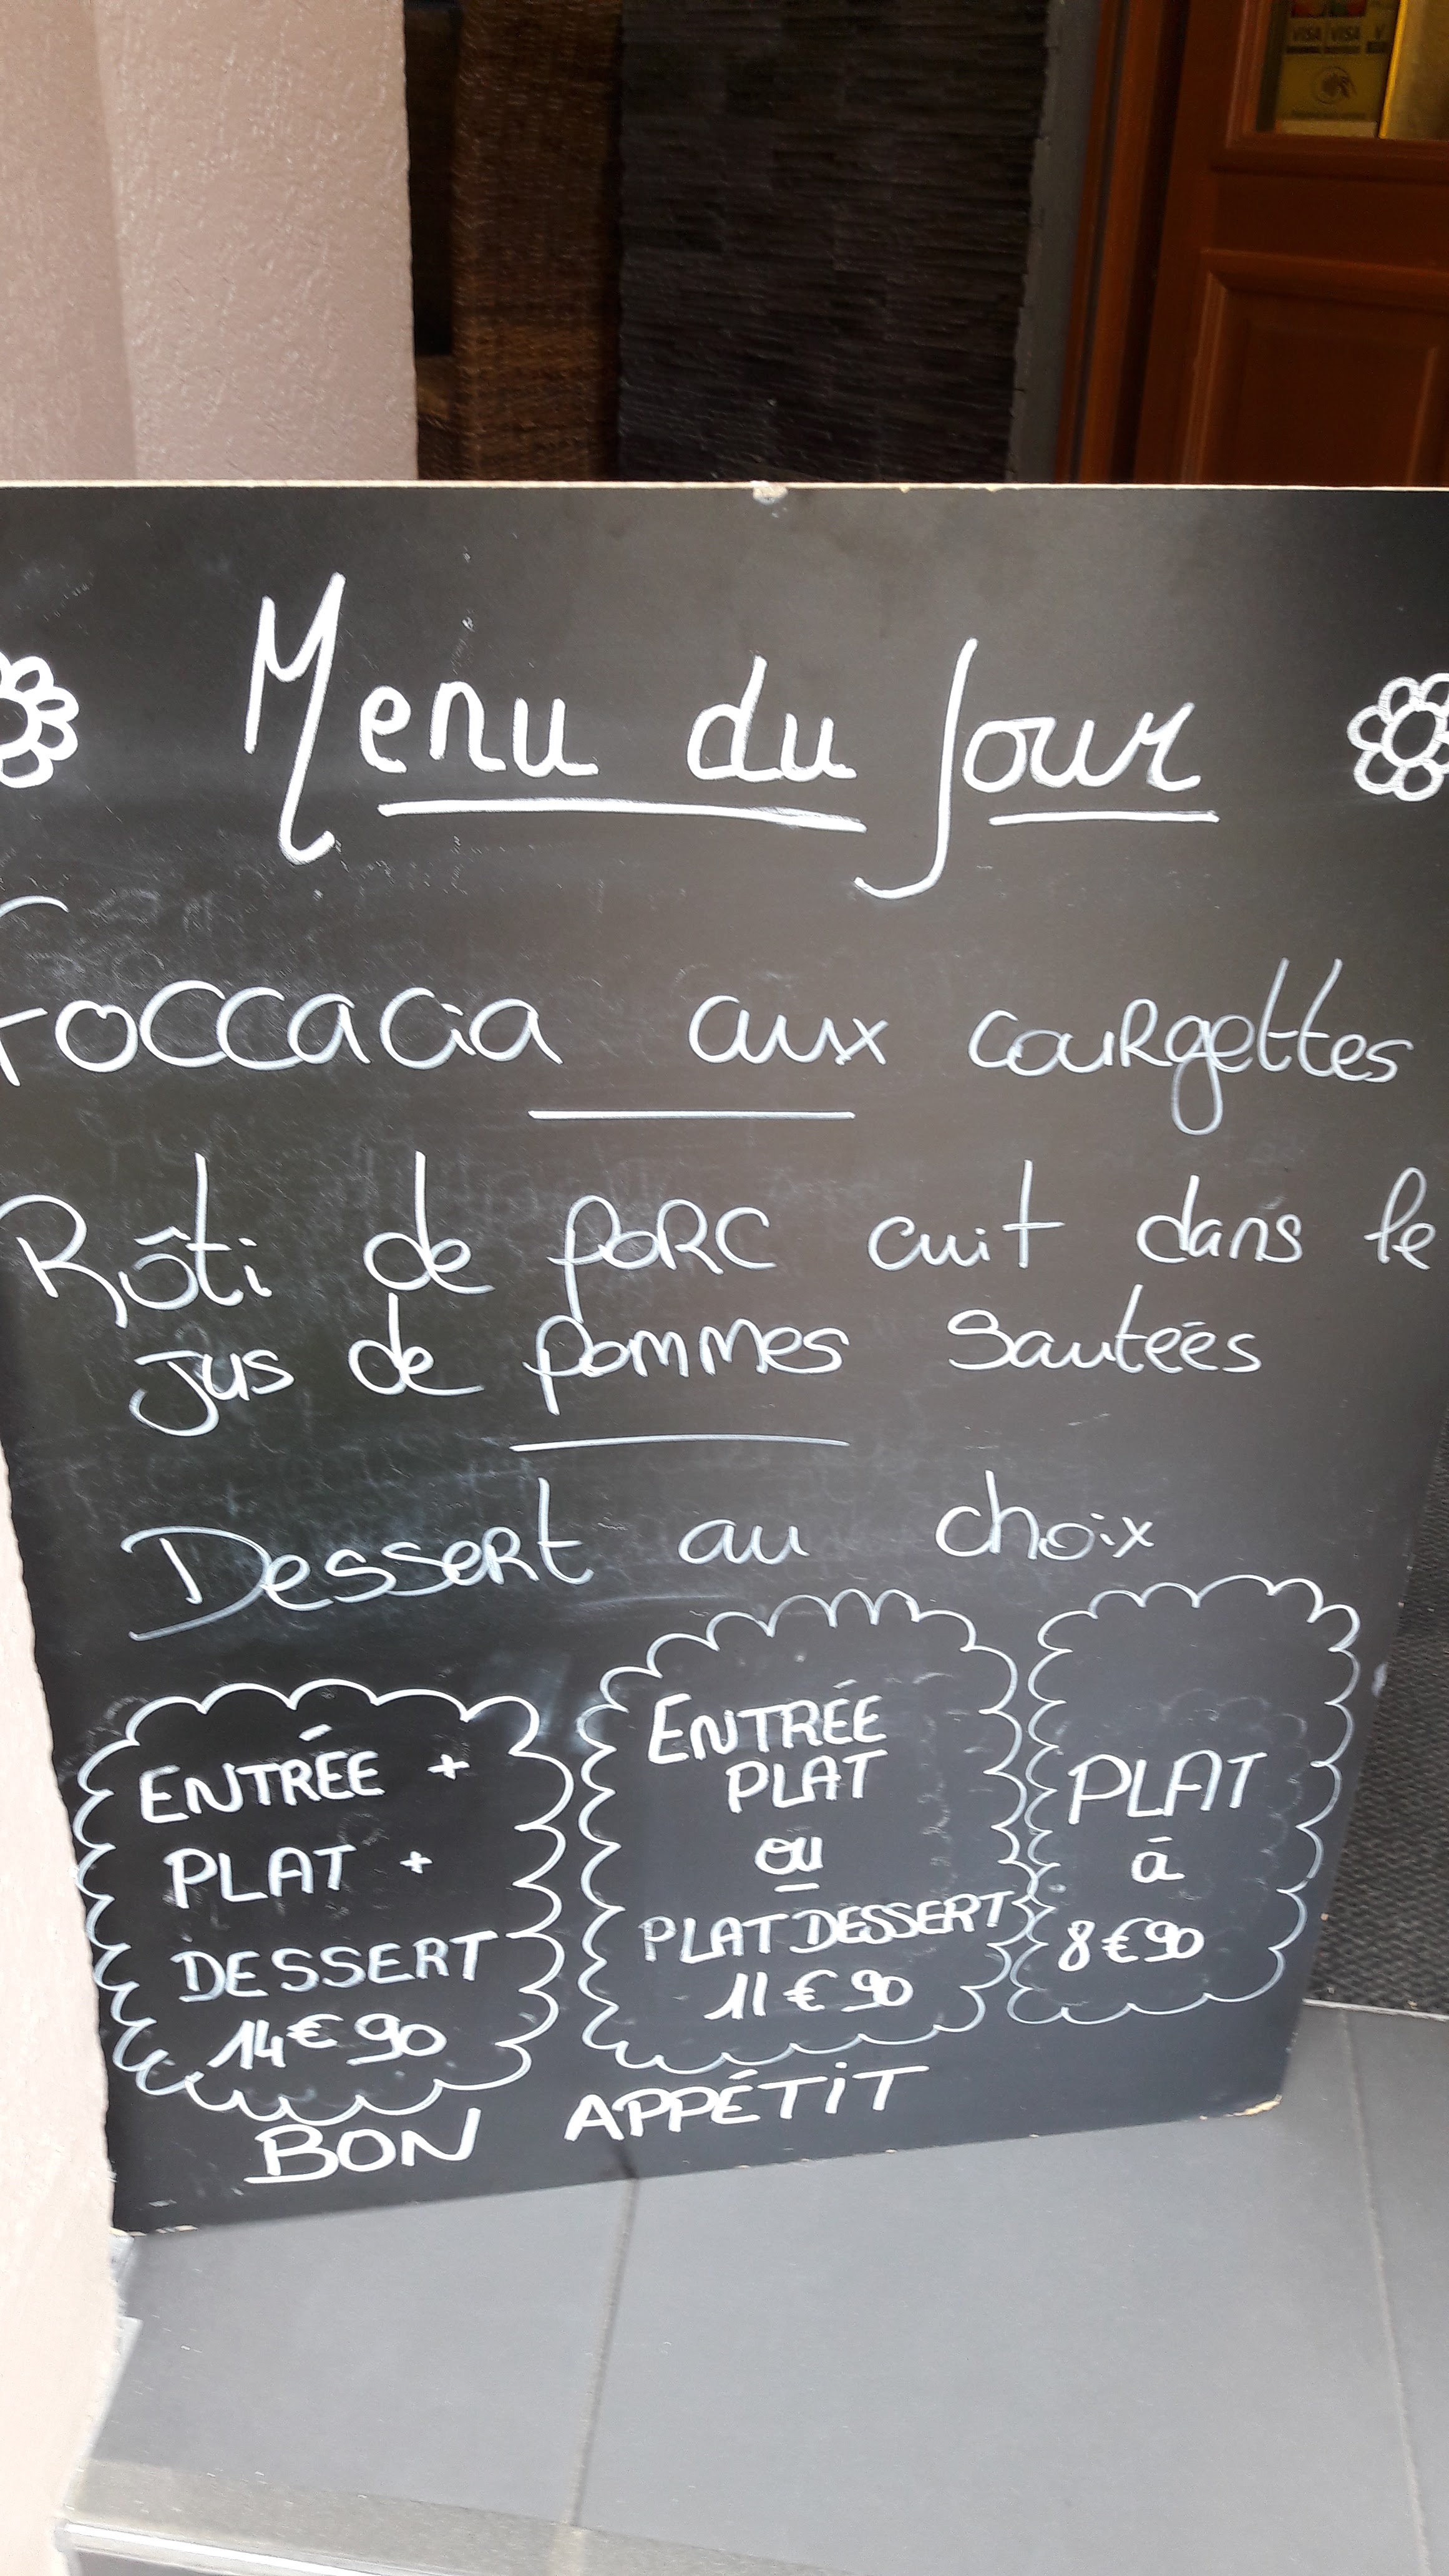 VISA VISA V
Menu du Jour
Foccacia aux courgettes
Rôti de porc cuit dans le
jus de pommes sautées
Dessert au choix
ENTRÉE +
PLAT +
DESSERT
14€90
ENTRÉE
PLAT
ou
PLAT DESSERT
11€90
PLAT
à
8€90
BON APPÉTIT